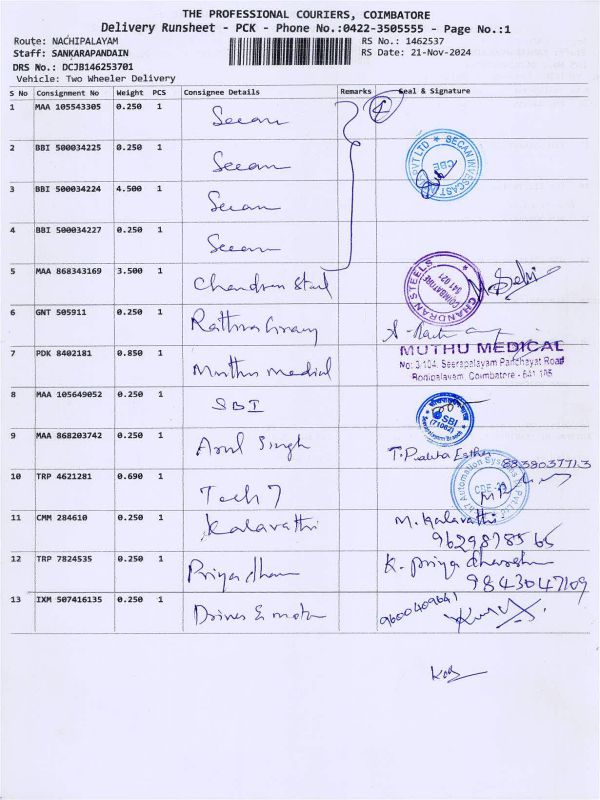 THE PROFESSIONAL COURIERS, COIMBATORE
Delivery Runsheet - PCK - Phone No.:0422-3505555 - Page No.:1
Route: NACHIPALAYAM RS No.: 1462537
Staff: SANKARAPANDAIN RS Date: 21-Nov-2024
DRS No.: DCJB146253701
Vehicle: Two Wheeler Delivery
S No Consignment No Weight PCS Consignee Details Remarks Seal & Signature
1 MAA 105543305 0.250 1 Secan
2 BBI 500034225 0.250 1 Secan
3 BBI 500034224 4.500 1 Secan
4 BBI 500034227 0.250 1 Secan
PVT LTD * SECAN INVESCAST
CBE
5 MAA 868343169 3.500 1 Chandran Steel
CHANDRAN STEELS
COIMBATORE
641 021
6 GNT 505911 0.250 1
7 PDK 8402181 0.850 1 Muthu medical
MUTHU MEDICAL
No: 3/104, Seerapalayam Panchayat Road
Coimbatore - 641 105
8 MAA 105649052 0.250 1 SBI
SBI
(71062)
9 MAA 868203742 0.250 1 Arul Singh
10 TRP 4621281 0.690 1 Tech 7
Automation Systems
11 CMM 284610 0.250 1 Kalavathi M. Kalavathi
9629878565
12 TRP 7824535 0.250 1 Priyadharsan K. Priya
9843047109
13 IXM 507416135 0.250 1 Drives & motor 9600409641